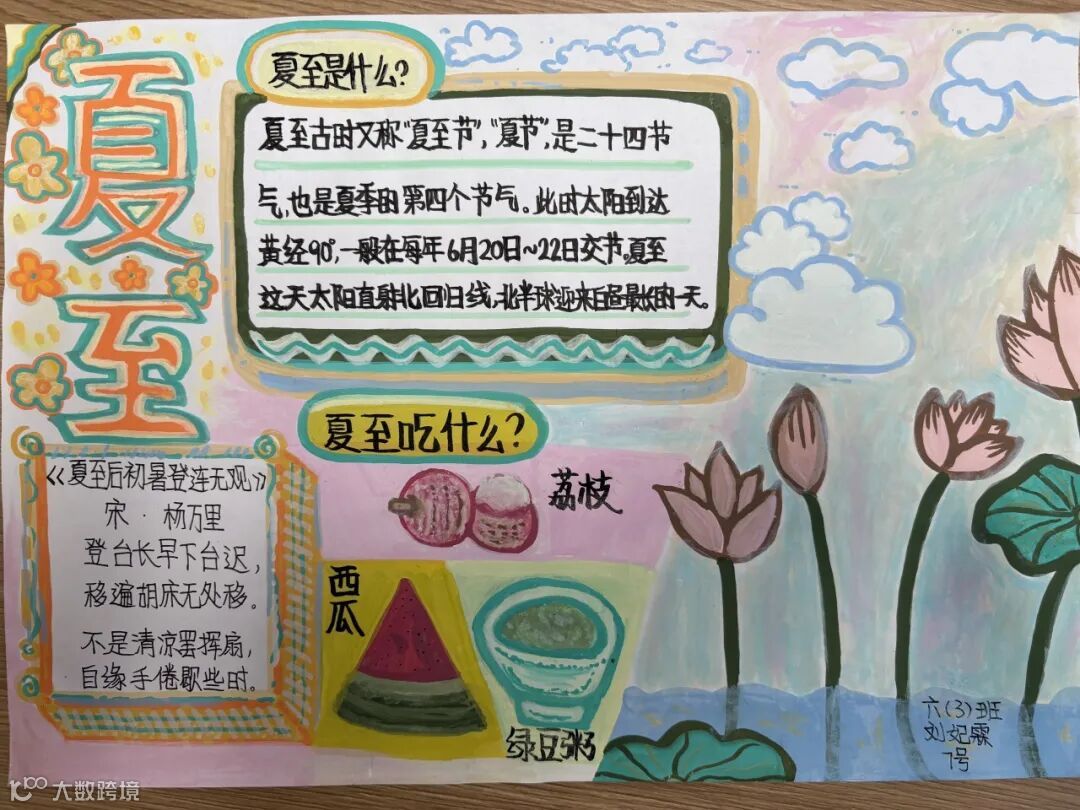 夏至
夏至是什么?
夏至古时又称“夏至节”,“夏节”,是二十四节
气,也是夏季的第四个节气。此时太阳到达
黄经90°,一般在每年6月20日~22日交节。夏至
这天太阳直射北回归线,北半球迎来白昼最长的一天。
夏至吃什么?
荔枝
西瓜
绿豆粥
《夏至后初暑登连无观》
宋·杨万里
登台长早下台迟,
移遍胡床无处移。
不是清凉罢挥扇,
自缘手倦歇些时。
六(3)班
刘妃霖
7号
大数跨境